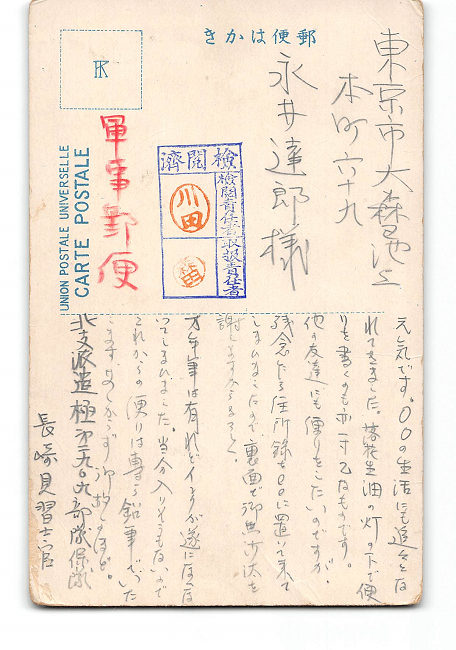 郵便はかき
東京市大森池上
本町六十九
永井達郎様
軍事郵便
UNION POSTALE UNIVERSELLE
CARTE POSTALE
検閲済
検閲責任者
取扱責任者
川田
元気です。〇〇の生活にも追々とな
れてきました。落花生油の灯の下で便
りを書くのも亦一寸乙なものです。
他の友達にも便りをしたいのですが、
残念なる住所録を〇〇に置いて来て
しまひましたので、裏面で御無沙汰を
謝しますからよろしく。
万年筆は有れどインクが遂になくな
つてしまひました。当分入りそうもないので
これからの便りは専ら鉛筆でいた
します。あしからず御
北支派遣極第二九〇九部隊保隊
長崎見習士官